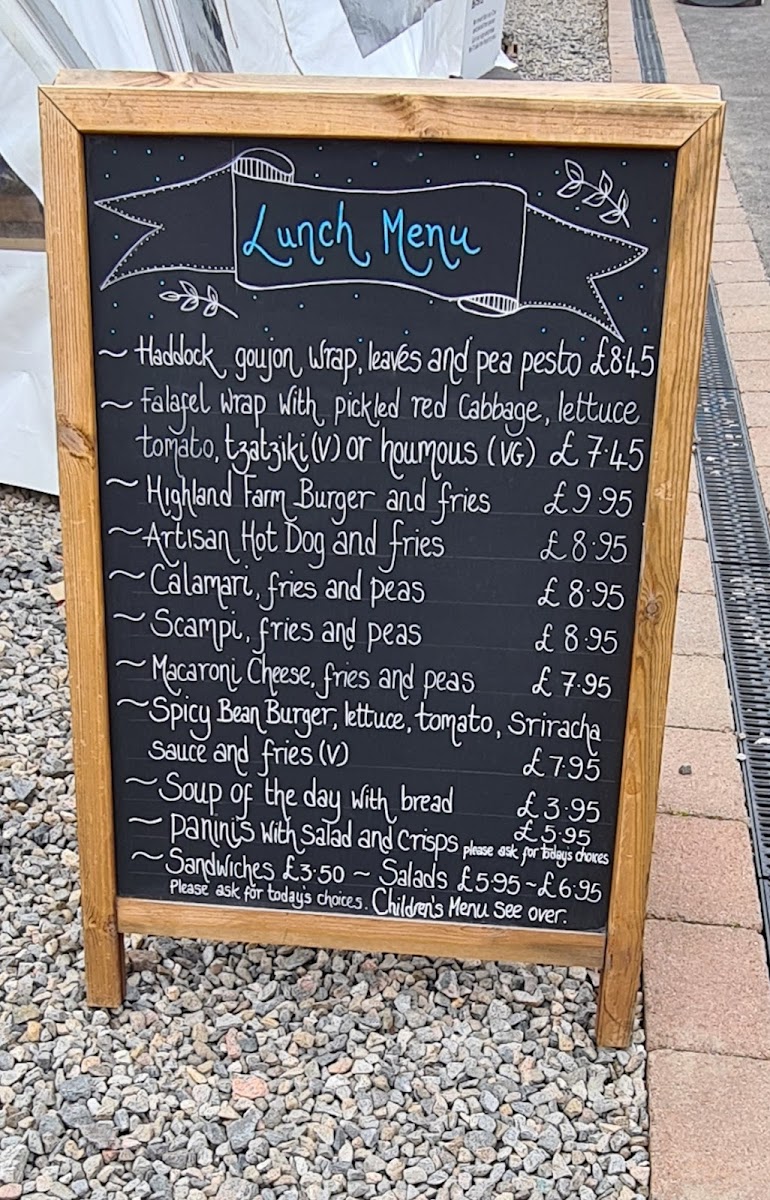 Lunch Menu
~ Haddock goujon wrap, leaves and pea pesto £8.45
~ Falafel wrap with pickled red cabbage, lettuce
tomato, tzatziki (V) or houmous (VG) £7.45
~ Highland Farm Burger and fries £9.95
~ Artisan Hot Dog and fries £8.95
~ Calamari, fries and peas £8.95
~ Scampi, fries and peas £8.95
~ Macaroni Cheese, fries and peas £7.95
~ Spicy Bean Burger, lettuce, tomato, Sriracha
sauce and fries (V) £7.95
~ Soup of the day with bread £3.95
~ Paninis with salad and crisps £5.95
please ask for today's choices
~ Sandwiches £3.50 ~ Salads £5.95~£6.95
Please ask for today's choices. Children's Menu see over.